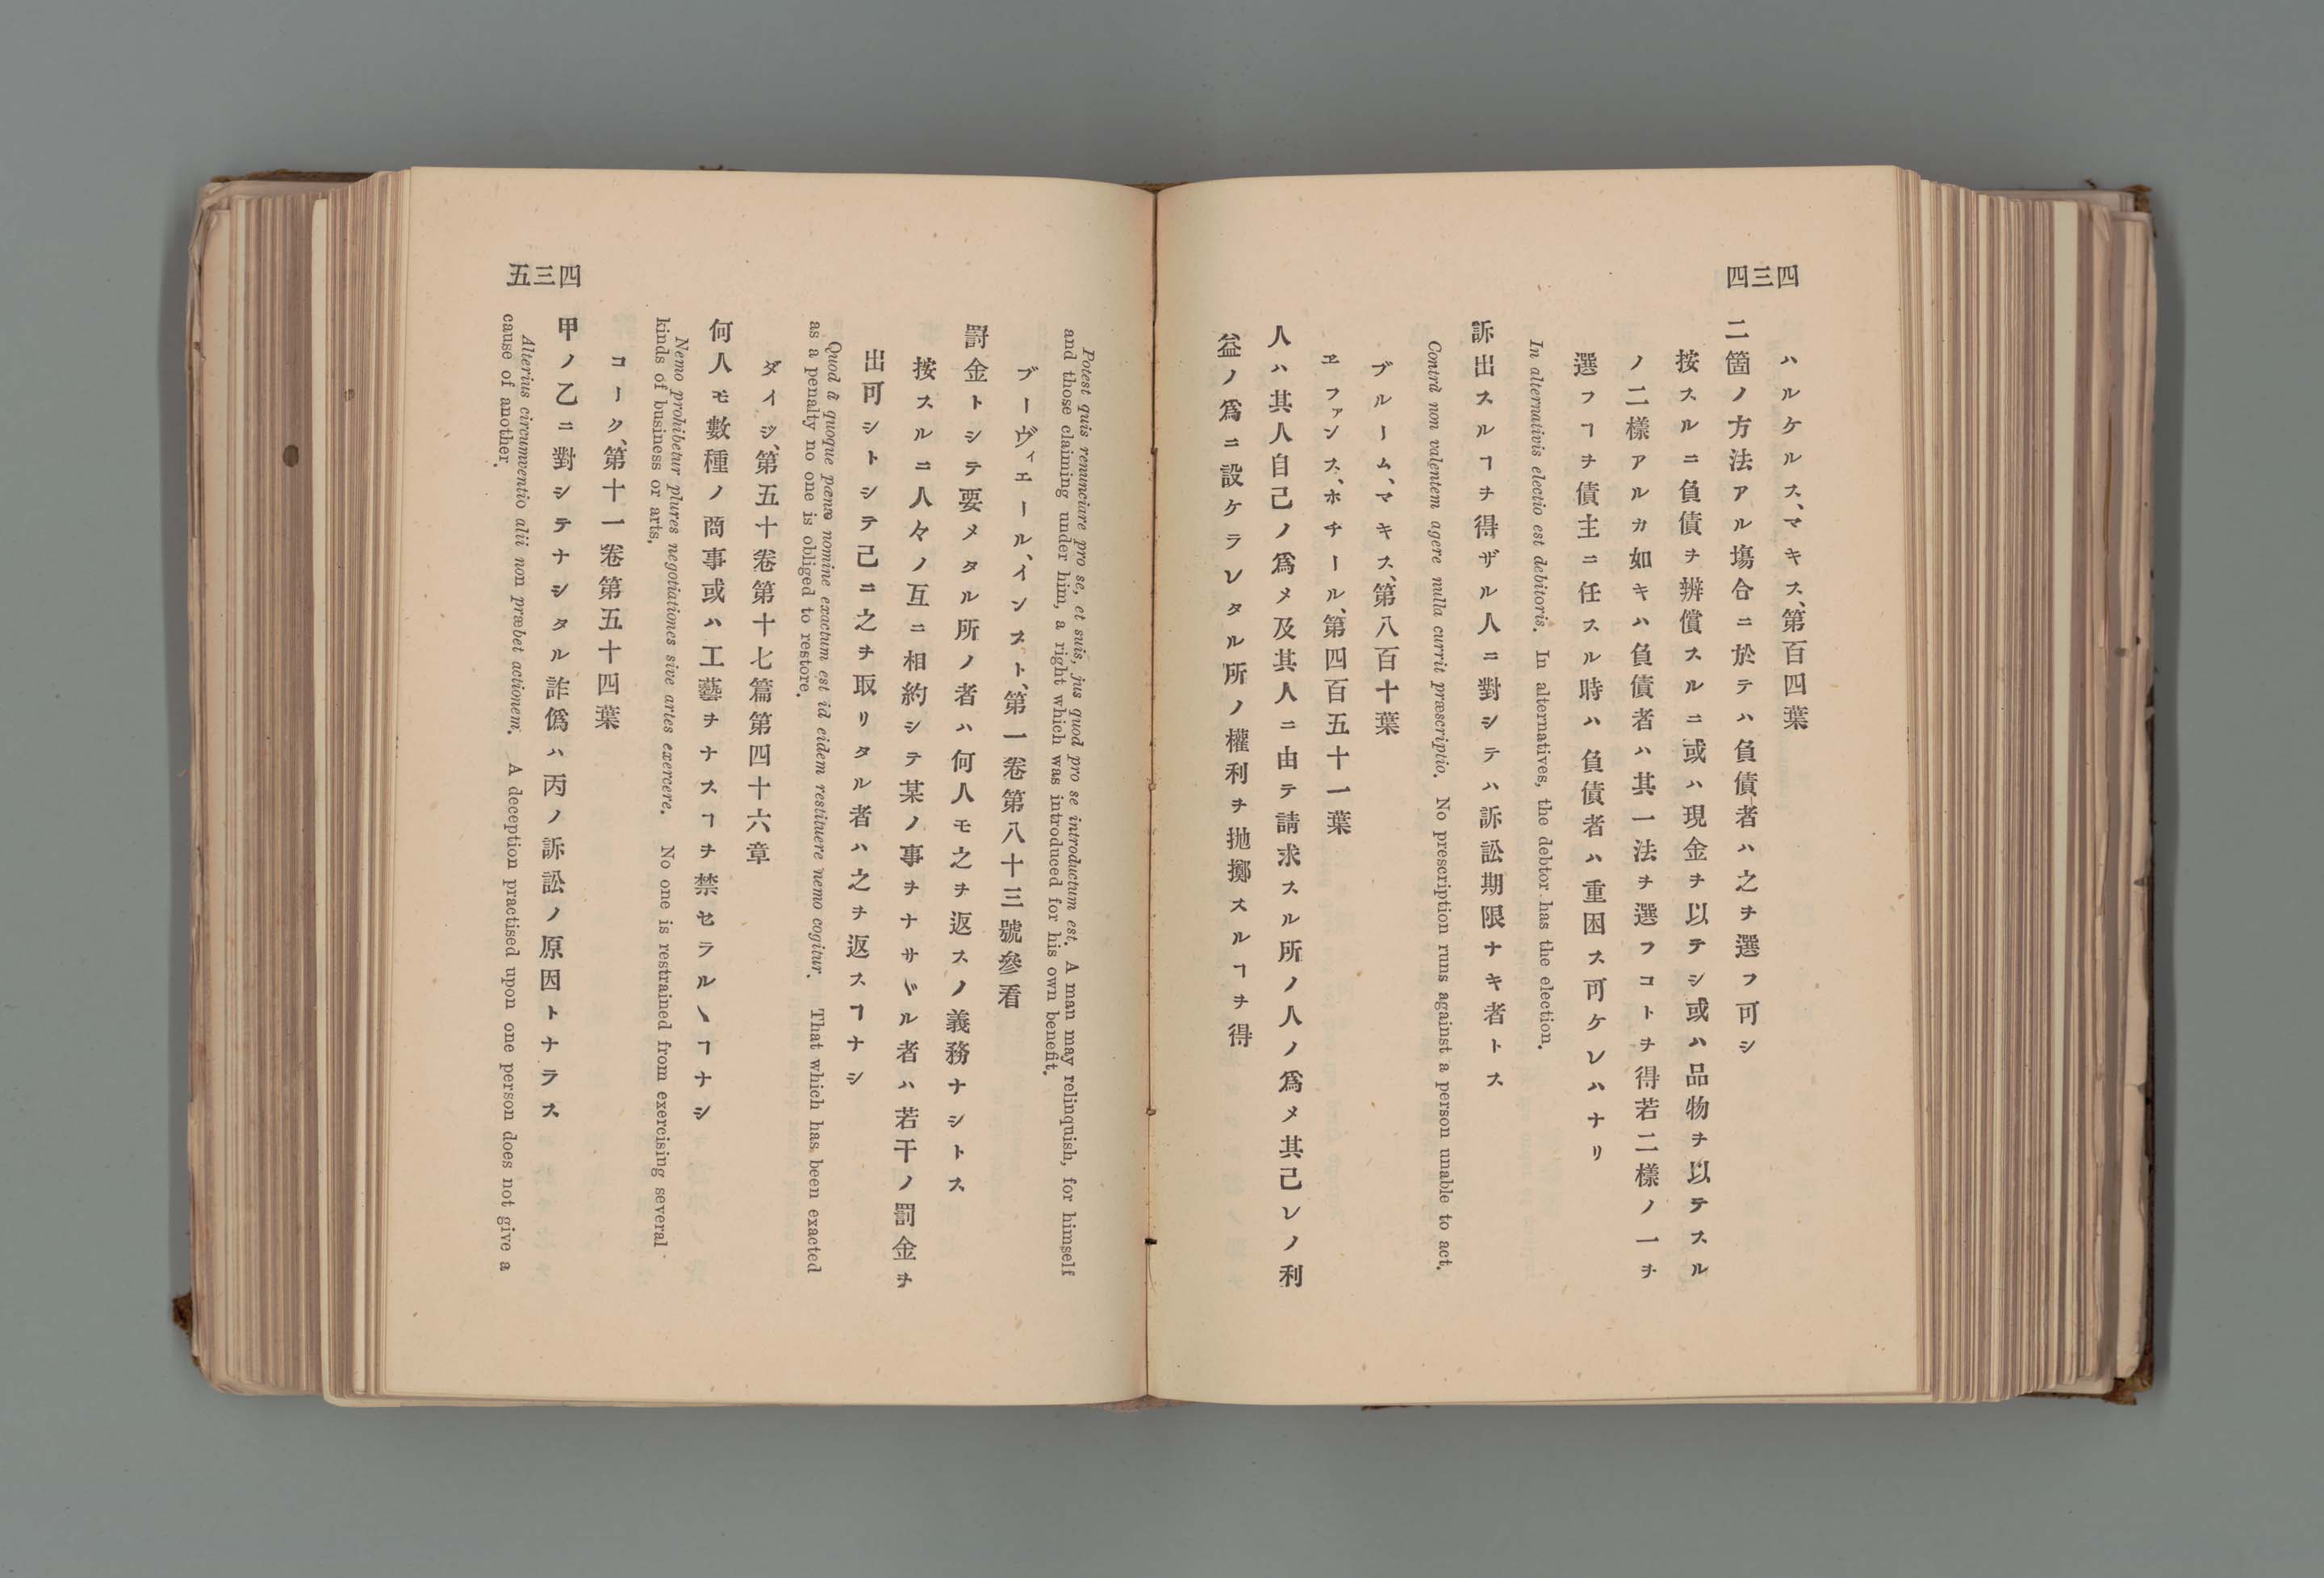 四三四
ハルケルス、マキス、第百四葉
二箇ノ方法アル塲合ニ於テハ負債者ハ之ヲ選フ可シ
按スルニ負債ヲ辨償スルニ或ハ現金ヲ以テシ或ハ品物ヲ以テスル
ノ二樣アルカ如キハ負債者ハ其一法ヲ選フコトヲ得若二樣ノ一ヲ
選フヿヲ債主ニ任スル時ハ負債者ハ重困ス可ケレハナリ
In alternativis electio est debitoris. In alternatives, the debtor has the election.
訴出スルヿヲ得ザル人ニ對シテハ訴訟期限ナキ者トス
Contrà non valentem agere nulla currit præscriptio. No prescription runs against a person unable to act.
ブルーム、マキス、第八百十葉
ヱファンス、ホチール、第四百五十一葉
人ハ其人自己ノ爲メ及其人ニ由テ請求スル所ノ人ノ爲メ其己レノ利
益ノ爲ニ設ケラレタル所ノ權利ヲ抛擲スルヿヲ得
Potest quis renunciare pro se, et suis, jus quod pro se introductum est. A man may relinquish, for himself
and those claiming under him, a right which was introduced for his own benefit.
ブーヴィエール、インスト、第一卷第八十三號參看
罸金トシテ要メタル所ノ者ハ何人モ之ヲ返スノ義務ナシトス
按スルニ人々ノ互ニ相約シテ某ノ事ヲナサヾル者ハ若干ノ罰金ヲ
出可シトシテ己ニ之ヲ取リタル者ハ之ヲ返スヿナシ
Quod à quoque pœnæ nomine exactum est id eidem restituere nemo cogitur. That which has been exacted
as a penalty no one is obliged to restore.
ダイジ、第五十卷第十七篇第四十六章
何人モ數種ノ商事或ハ工藝ヲナスヿヲ禁セラルヽヿナシ
Nemo prohibetur plures negotiationes sive artes exercere. No one is restrained from exercising several
kinds of business or arts.
コーク、第十一卷第五十四葉
甲ノ乙ニ對シテナシタル詐僞ハ丙ノ訴訟ノ原因トナラス
Alterius circumventio alii non præbet actionem. A deception practised upon one person does not give a
cause of another.
四三五